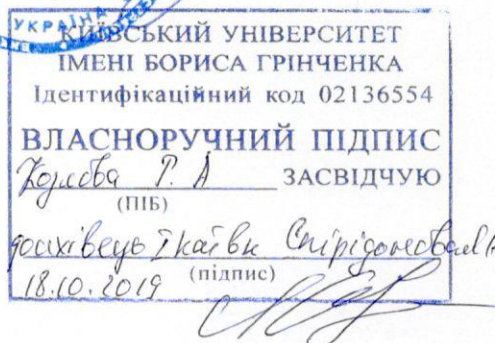 УКРАЇНА
КИЇВСЬКИЙ УНІВЕРСИТЕТ
ІМЕНІ БОРИСА ГРІНЧЕНКА
Ідентифікаційний код 02136554
ВЛАСНОРУЧНИЙ ПІДПИС
Козлова Р. А ЗАСВІДЧУЮ
(ПІБ)
Спірідонова
18.10.2019 (підпис)